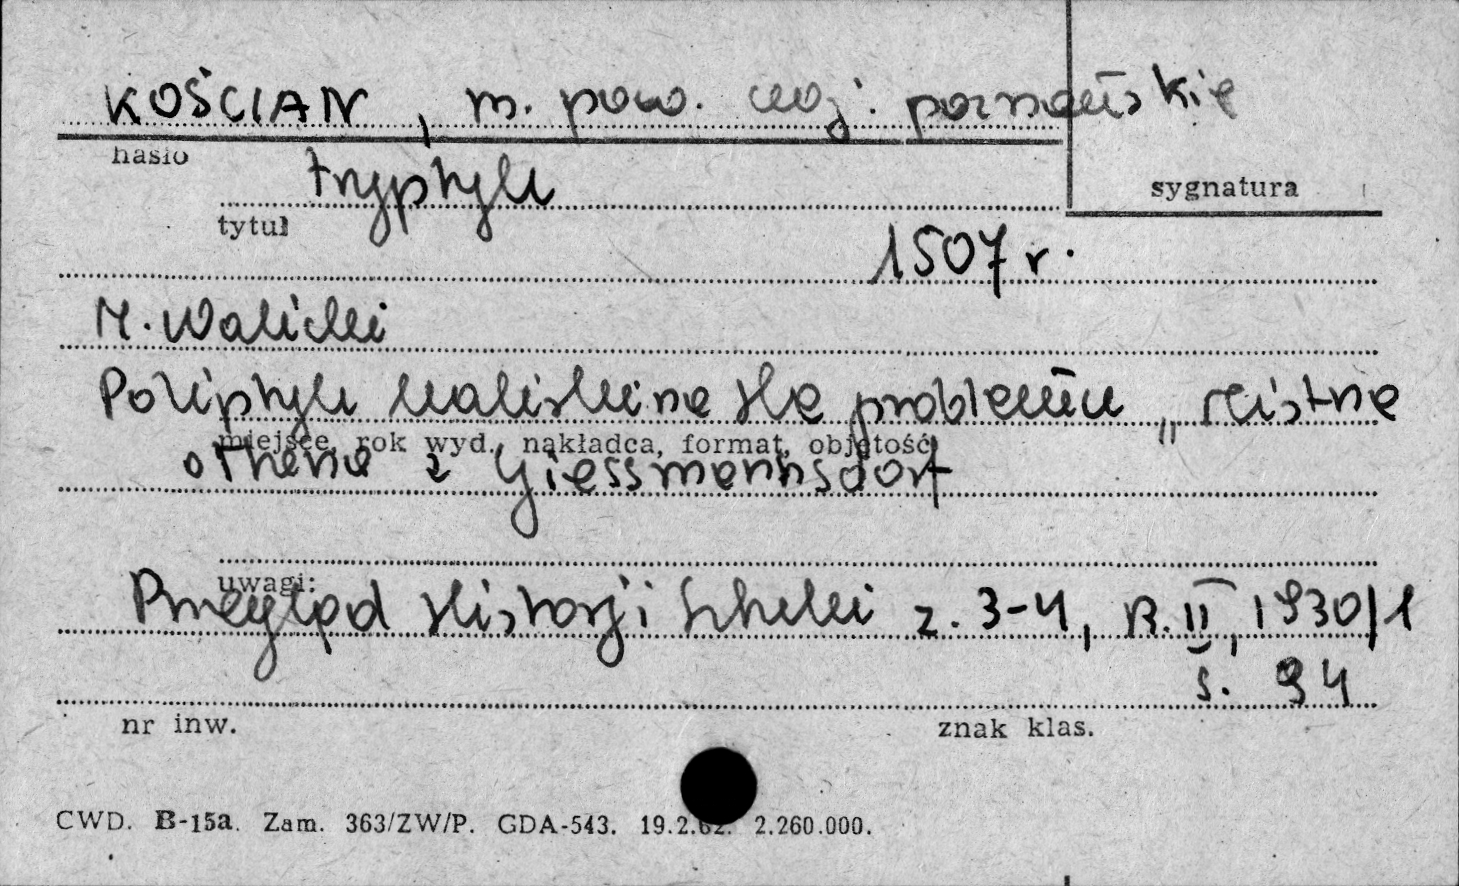 KOŚCIAN, m. pow. woj. poznańskie
hasło
tryptyk
sygnatura
tytuł
1507 r.
M. Walicki
Poliptyk kaliski na tle problemu „mistrza
miejsce, rok wyd., nakładca, format, objętość
ołtarza z Giessmannsdorf
uwagi:
Przegląd Historji Sztuki z. 3-4, R. II, 1930/1
s. 94
nr inw.
znak klas.
CWD. B-15a. Zam. 363/ZW/P. GDA-543. 19.2.62. 2.260.000.